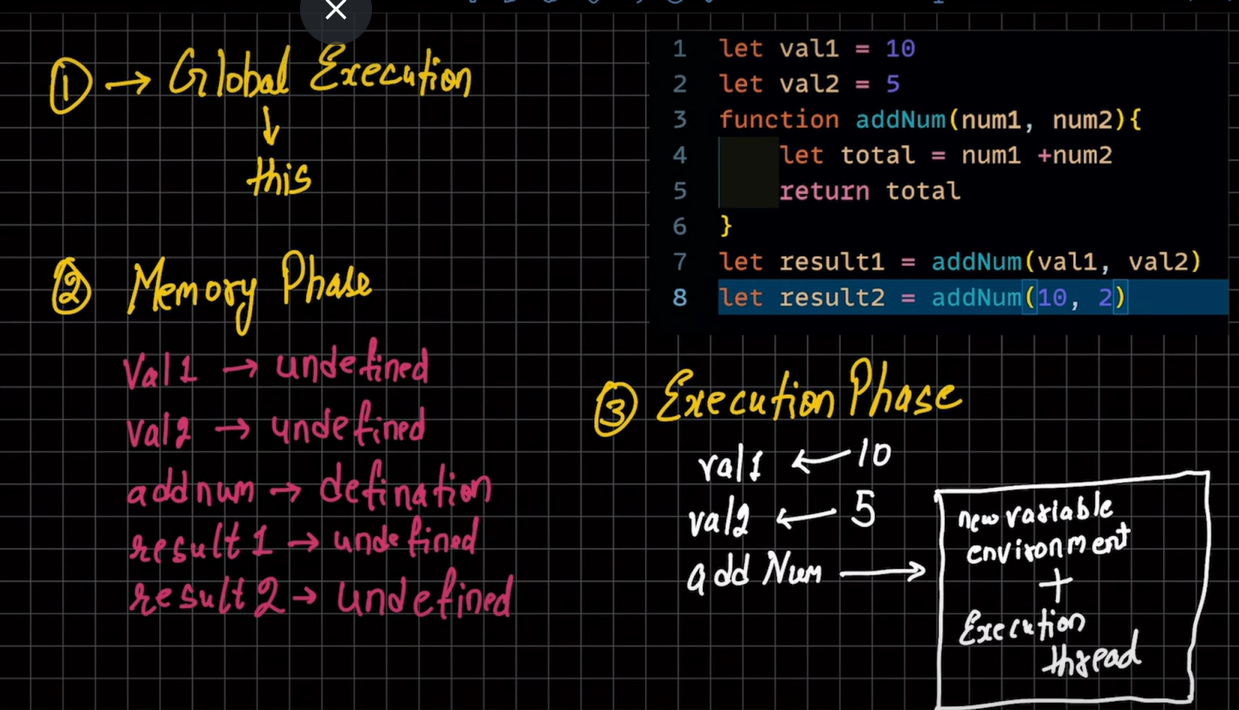 ① → Global Execution
↓
this
② Memory Phase
Val1 → undefined
val2 → undefined
addnum → defination
result 1 → undefined
result 2 → undefined
1 let val1 = 10
2 let val2 = 5
3 function addNum(num1, num2){
4 let total = num1 +num2
5 return total
6 }
7 let result1 = addNum(val1, val2)
8 let result2 = addNum(10, 2)
③ Execution Phase
val1 ← 10
val2 ← 5
add Num →
new variable
environment
+
Execution
thread